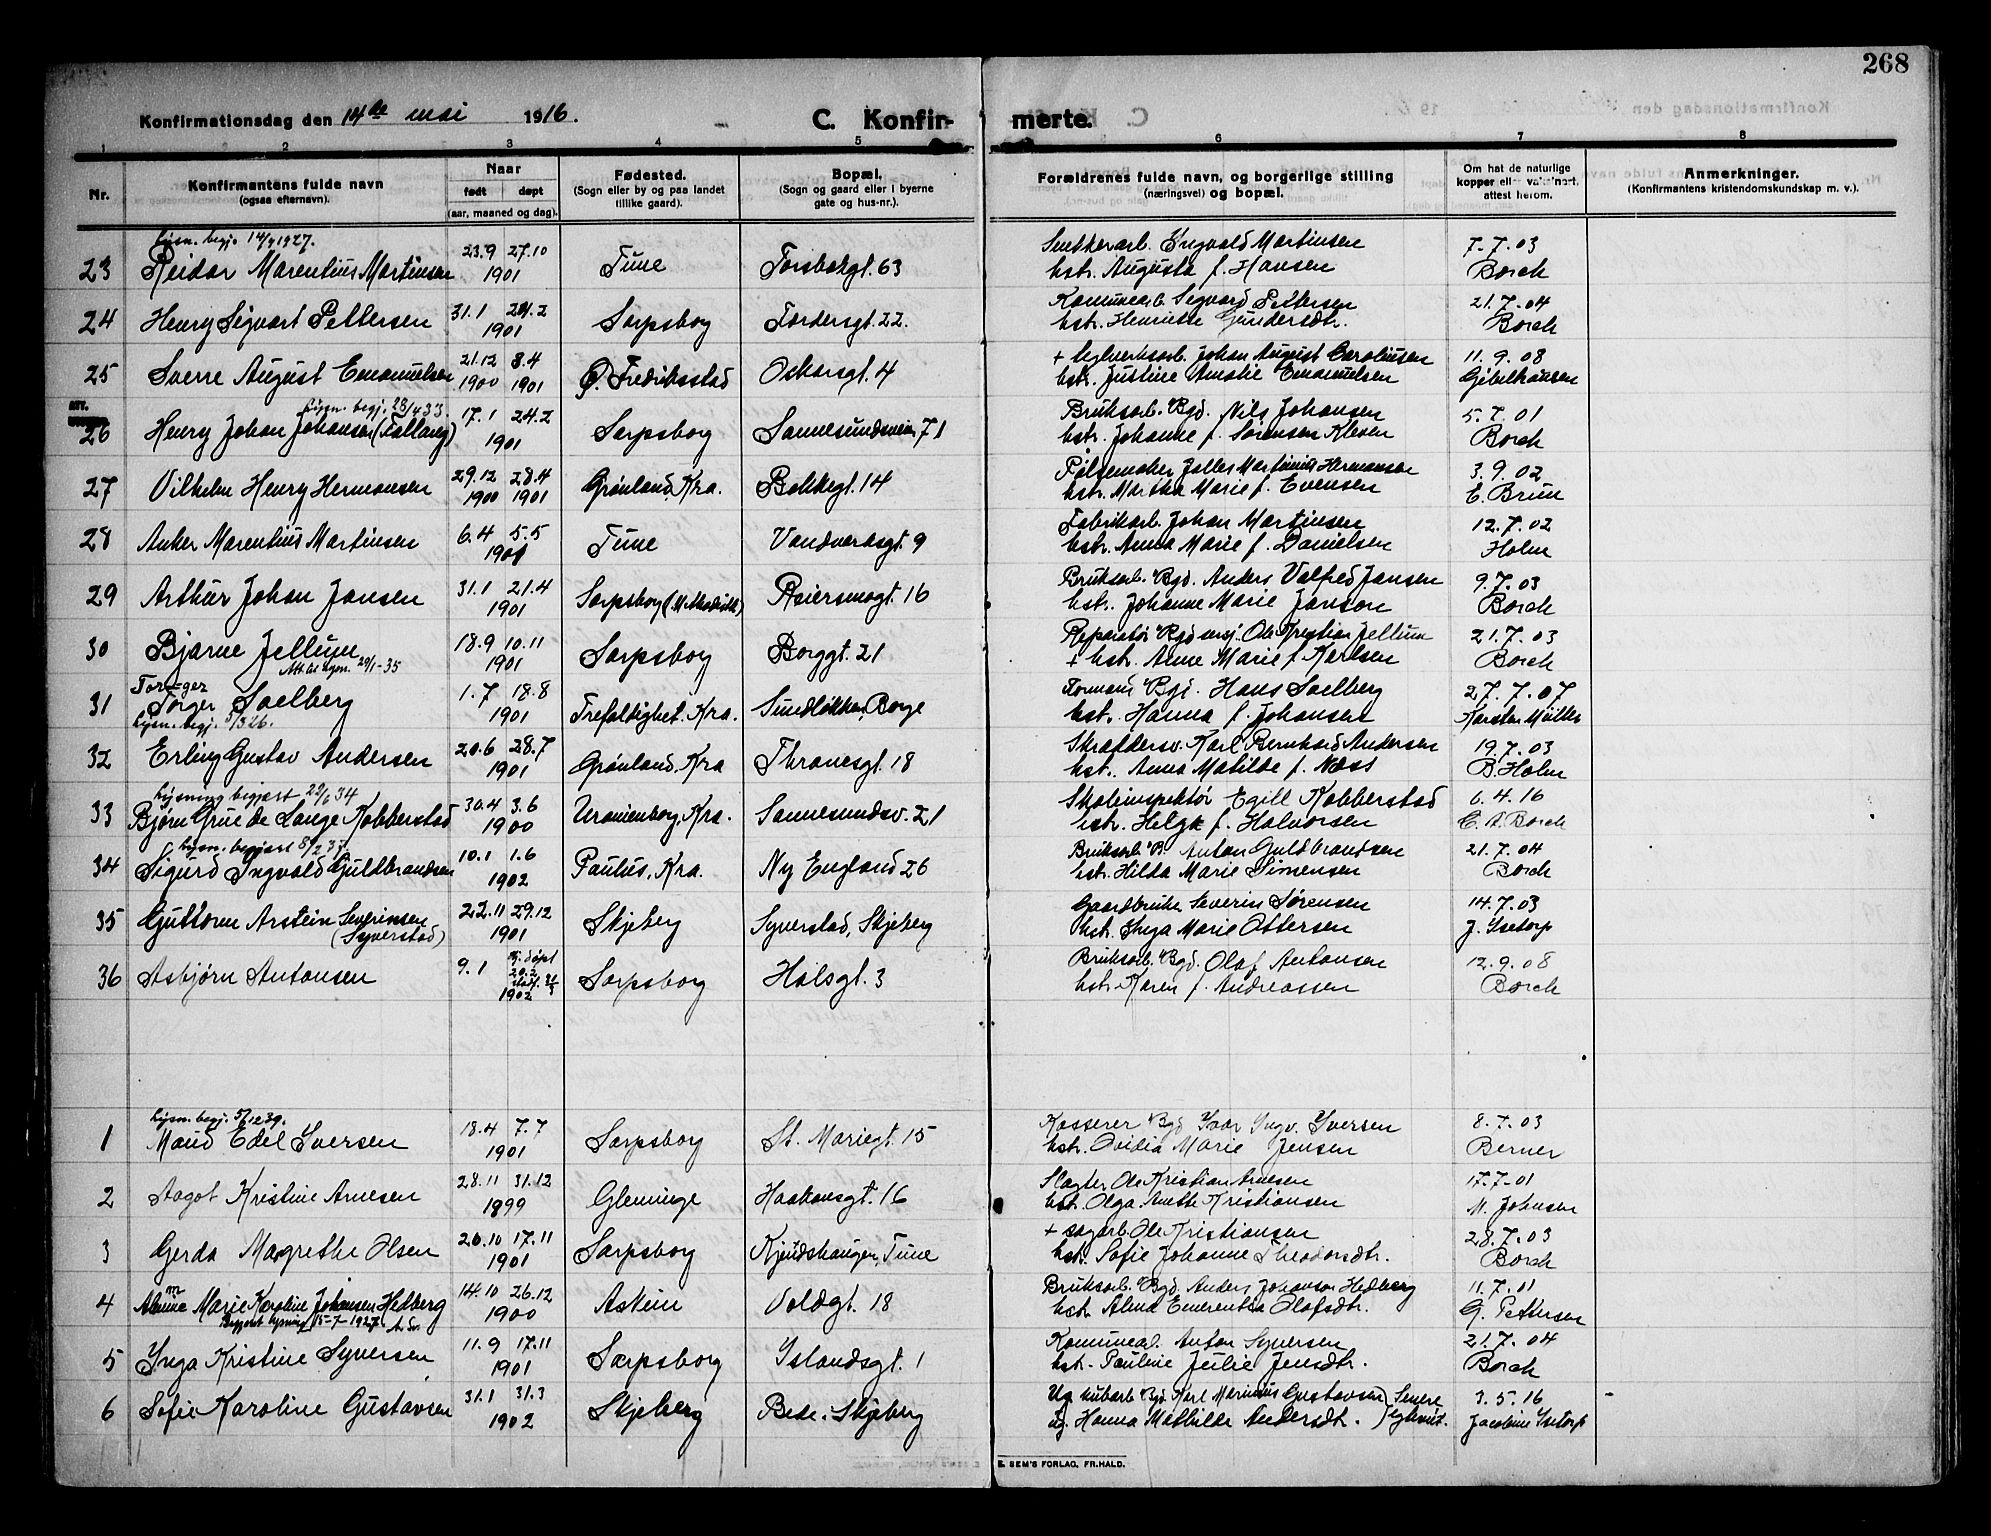 268
Konfirmationsdag den 14de mai 1916. C. Konfirmerte.
1 2 3 4 5 6 7 8
Nr. Konfirmantens fulde navn (ogsaa efternavn). Naar født døpt (aar, maaned og dag). Fødested. (Sogn eller by og paa landet tillike gaard). Bopæl. (Sogn og gaard eller i byerne gate og hus-nr.). Forældrenes fulde navn, og borgerlige stilling (næringsvei) og bopæl. Om hat de naturlige kopper eller vaksinert, attest herom. Anmerkninger. (Konfirmantens kristendomskundskap m. v.).
Lysn. begj. 14/9 1927.
23 Reidar Marentius Martinsen 23.9 27.10 1901 Tune Torsbekgt. 63 Ingvald Martinsen 7.7.03
hstr. Augusta f. Hansen Borch
24 Henry Sigvart Pettersen 31.1 24.2 1901 Sarpsborg Tordersgt. 22. Komunearb. Sigvard Pettersen 21.7.04
hstr. Henriette Gundersdtr. Borch
25 Sverre August Emanuelsen 21.12 1900 8.4 1901 Ø. Fredriksstad Oskarsgt. 4 + Teglverksarb. Johan August Carolinsen 11.9.08
hstr. Justine Amalie Emanuelsen Gibelhausen
Lysn. begj. 28/4 33.
26 Henry Johan Johansen (Fallang) 17.1 24.2 1901 Sarpsborg Sannesundsveien 71 Bruksarb. Bgd. Nils Johansen 5.7.01
hstr. Johanne f. Sørensen Kleven Borch
27 Vilhelm Henry Hermansen 29.12 1900 28.4 1901 Grønland, Kra. Bakkegt. 14 Pølsemaker Jalles Martinius Hermansen 3.9.02
hstr. Martha Marie f. Evensen E. Bruun
28 Anker Marentius Martinsen 6.4 5.5 1901 Tune Vandverksgt. 9 Fabrikarb. Johan Martinsen 12.7.02
hstr. Anna Marie f. Danielsen Holm
29 Arthur Johan Jansen 31.1 21.4 1901 Sarpsborg (Methodistk) Reiersmogt. 16 Bruksarb. Bgd. Anders Valfred Jansen 9.7.03
hstr. Johanne Marie Janson Borch
30 Bjarne Jellum 18.9 10.11 1901 Sarpsborg Borggt. 21 Reparatør Bgd. Ole Kristian Jellum 21.7.03
Att. til lysn. 29/1-35 + hstr. Anne Marie f. Karlsen Borch
Tor-ger
31 Torger Solberg 1.7 18.8 1901 Trefoldighet. Kra. Sundløkken, Borge Formand Bgd. Hans Solberg 27.7.07
Lysn. begj. 5/3 26. hstr. Hanna f. Johansen Karsten Müller
32 Erling Gustav Andersen 20.6 28.7 1901 Grønland, Kra Thranesgt. 18 Skræddersv. Karl Bernhard Andersen 19.7.03
hstr. Anna Matilde f. Næss B. Holm
Lysning begjært 22/6 34
33 Bjørn Grue de Lange Kobberstad 30.4 3.6 1900 Uranienborg, Kra. Sannesundsv. 21 Skoleinspektør Egill Kobberstad 6.4.16
hstr. Helga f. Halvorsen C. A. Borch
Lysn. begjært 8/2 37.
34 Sigurd Ingvald Guldbrandsen 10.1 1.6 1902 Paulus, Kra. Ny England 26 Bruksarb. B. Anton Guldbrandsen 21.7.04
hstr. Hilda Marie Simensen Borch
35 Guttorm Arstein Severinsen (Syverstad) 22.11 29.12 1901 Skjeberg Syverstad, Skjeberg Gaardbruker Severin Sørensen 14.7.03
hstr. Inga Marie Ottersen J. Isetorp
36 Asbjørn Antonsen 9.1 Hj. døpt 20.2 1902 Sarpsborg Halsgt. 3 Bruksarb. Bgd. Olaf Antonsen 12.9.08
hstr. Karen f. Andreassen Borch
Lysn. begj. 5/12 39.
1 Maud Edel Iversen 18.4 7.7 1901 Sarpsborg St. Mariegt. 15 Kasserer Bgd Ivar Ingv. Iversen 8.7.03
hstr. Ovidia Marie Jensen Berner
2 Aagot Kristine Arnesen 28.11 31.12 1899 Glemminge Haakonsgt. 16 Slagter Ole Kristian Arnesen 17-7-01
hst. Olga Anette Kristiansen M. Johnsen
3 Gerda Magrethe Olsen 20.10 17.11 1901 Sarpsborg Kjendshaugen, Tune + sagarb. Ole Kristiansen 28.7.03
hst. Sofie Johanne Theodorsdtr. Borch
4 Alma Marie Karoline Johansen Hedberg 14.10 26.12 1900 Askim Voldgt. 18 Bruksarb. Bgd. Anders Johanson Hedberg 11.7.01
Begjært lysning 15-7-1927 hstr. Alma Emerentia Olafsdtr. G. Pettersen
5 Inga Kristine Syversen 11.9 17.11 1901 Sarpsborg Islandsgt. 1 Anton Syversen 21.7.04
hst. Pauline Julie Jensdtr. Borch
6 Sofie Karoline Gustavsen 31.1 31.3 1902 Skjeberg Bede, Skjeberg Ug. Bgd. Karl Marinius Gustavsen) Senere 3.5.16
ug. Hanna Mathilde Andersdtr. ) egtevid. Jacobine Isetorp
E. SEM'S FORLAG, FR.HALD.